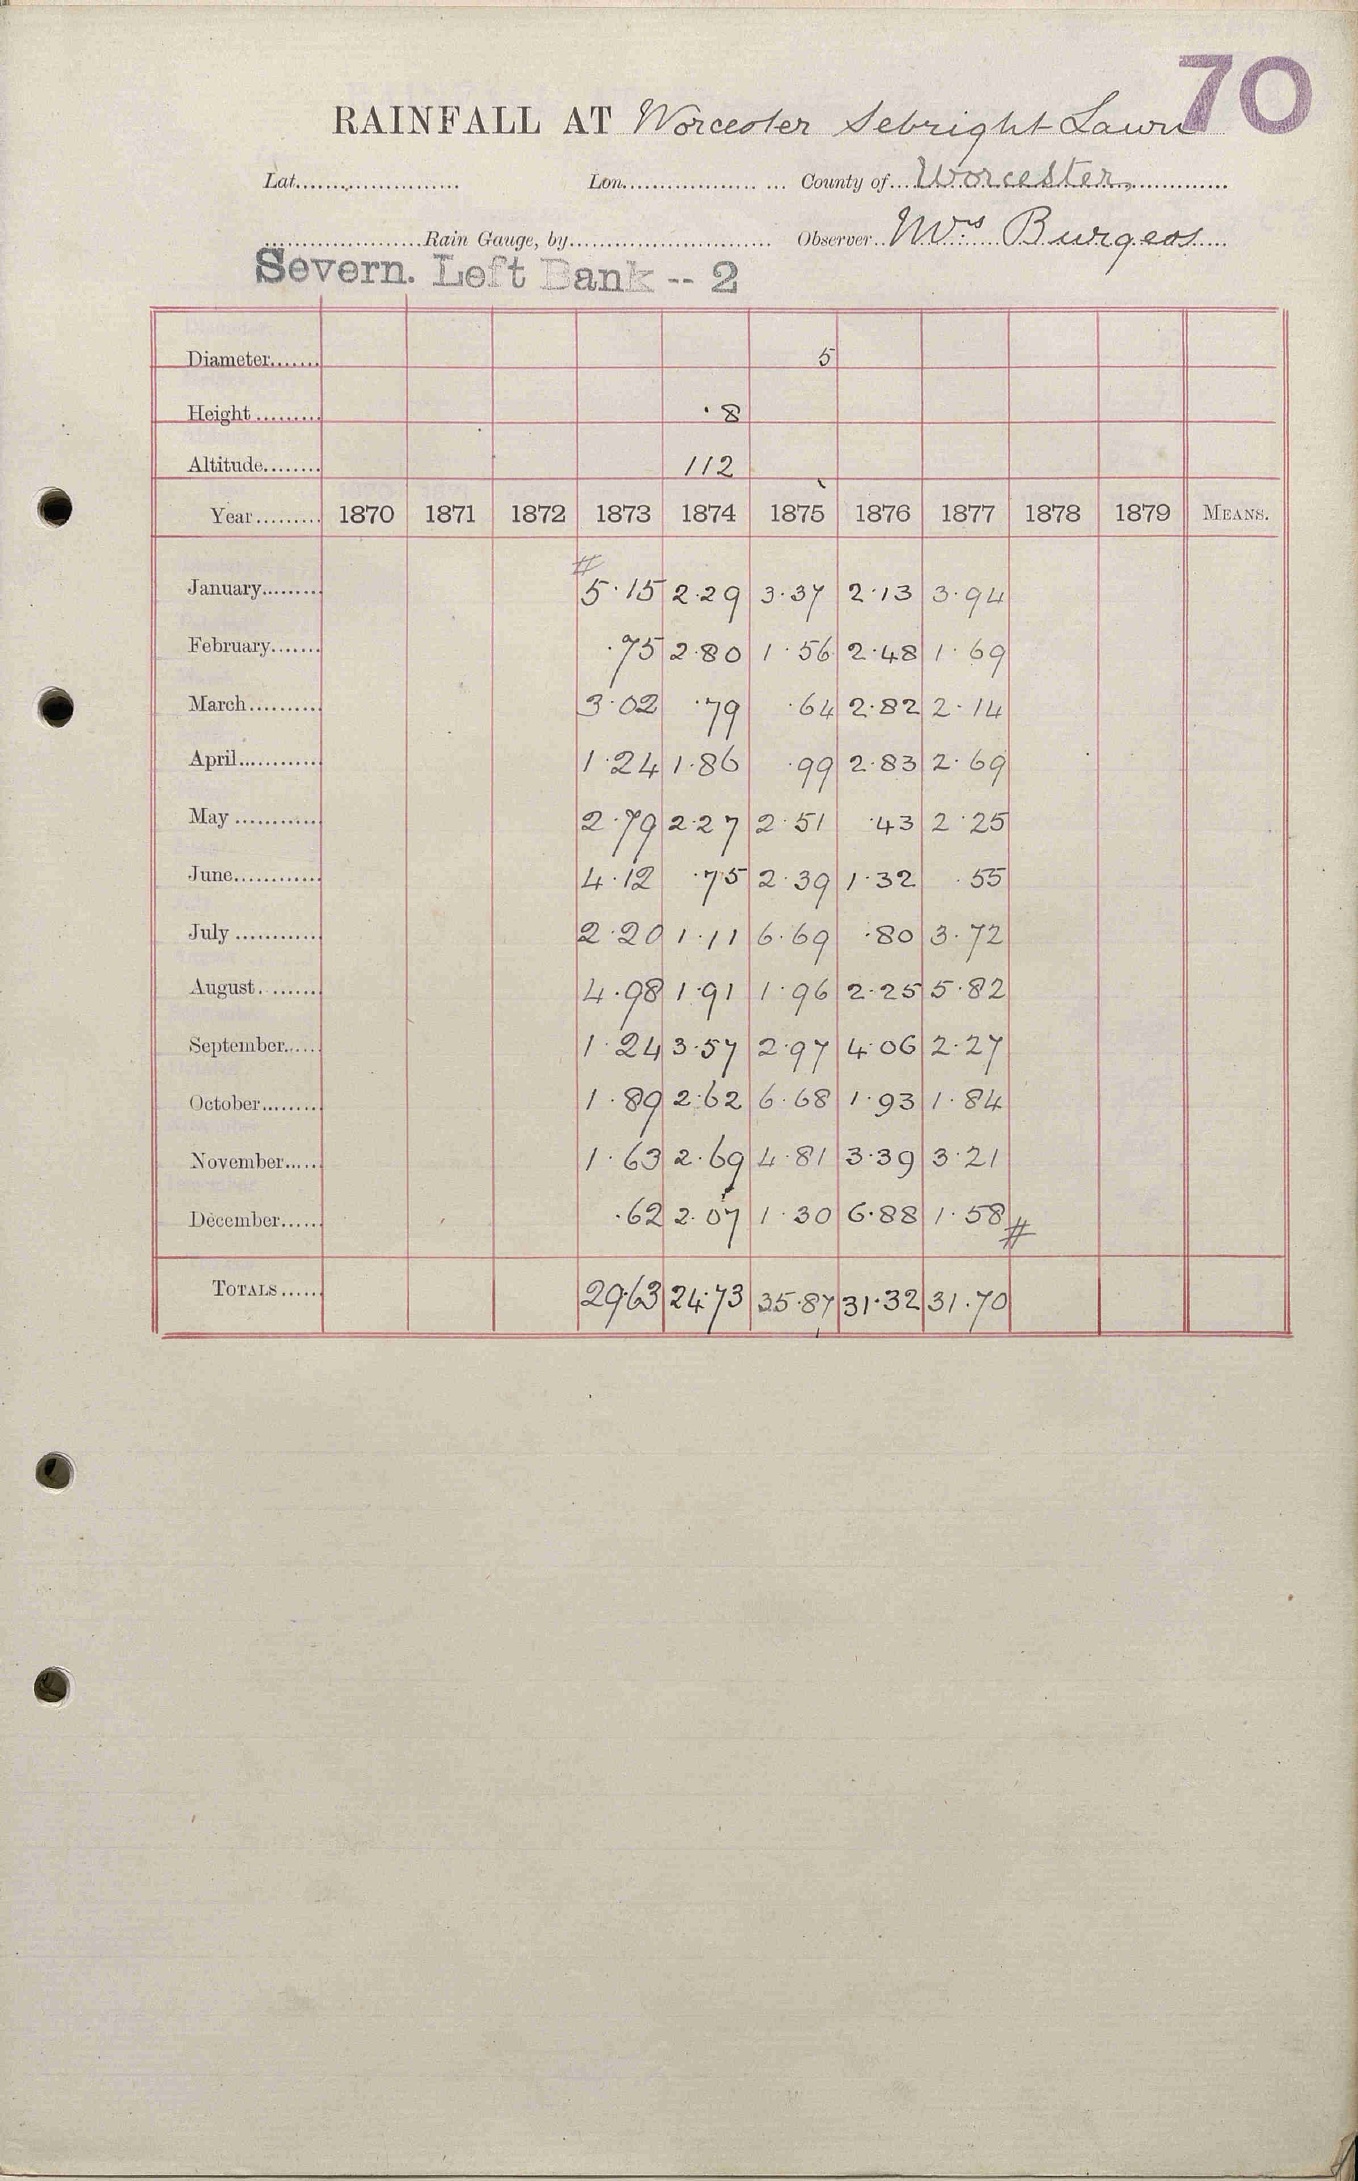 70
RAINFALL AT Worcester Sebright Lawn
Lat. Lon. County of Worcester.
Rain Gauge, by Observer Mrs Burgess
Severn. Left Bank -- 2
Diameter 5
Height ·8
Altitude 112
Year 1870 1871 1872 1873 1874 1875 1876 1877 1878 1879 MEANS.
#
January 5·15 2·29 3·37 2·13 3·94
February ·75 2·80 1·56 2·48 1·69
March 3·02 ·79 ·64 2·82 2·14
April 1·24 1·86 ·99 2·83 2·69
May 2·79 2·27 2·51 ·43 2·25
June 4·12 ·75 2·39 1·32 ·55
July 2·20 1·11 6·69 ·80 3·72
August 4·98 1·91 1·96 2·25 5·82
September 1·24 3·57 2·97 4·06 2·27
October 1·89 2·62 6·68 1·93 1·84
November 1·63 2·69 4·81 3·39 3·21
December ·62 2·07 1·30 6·88 1·58 #
TOTALS 29·63 24·73 35·87 31·32 31·70